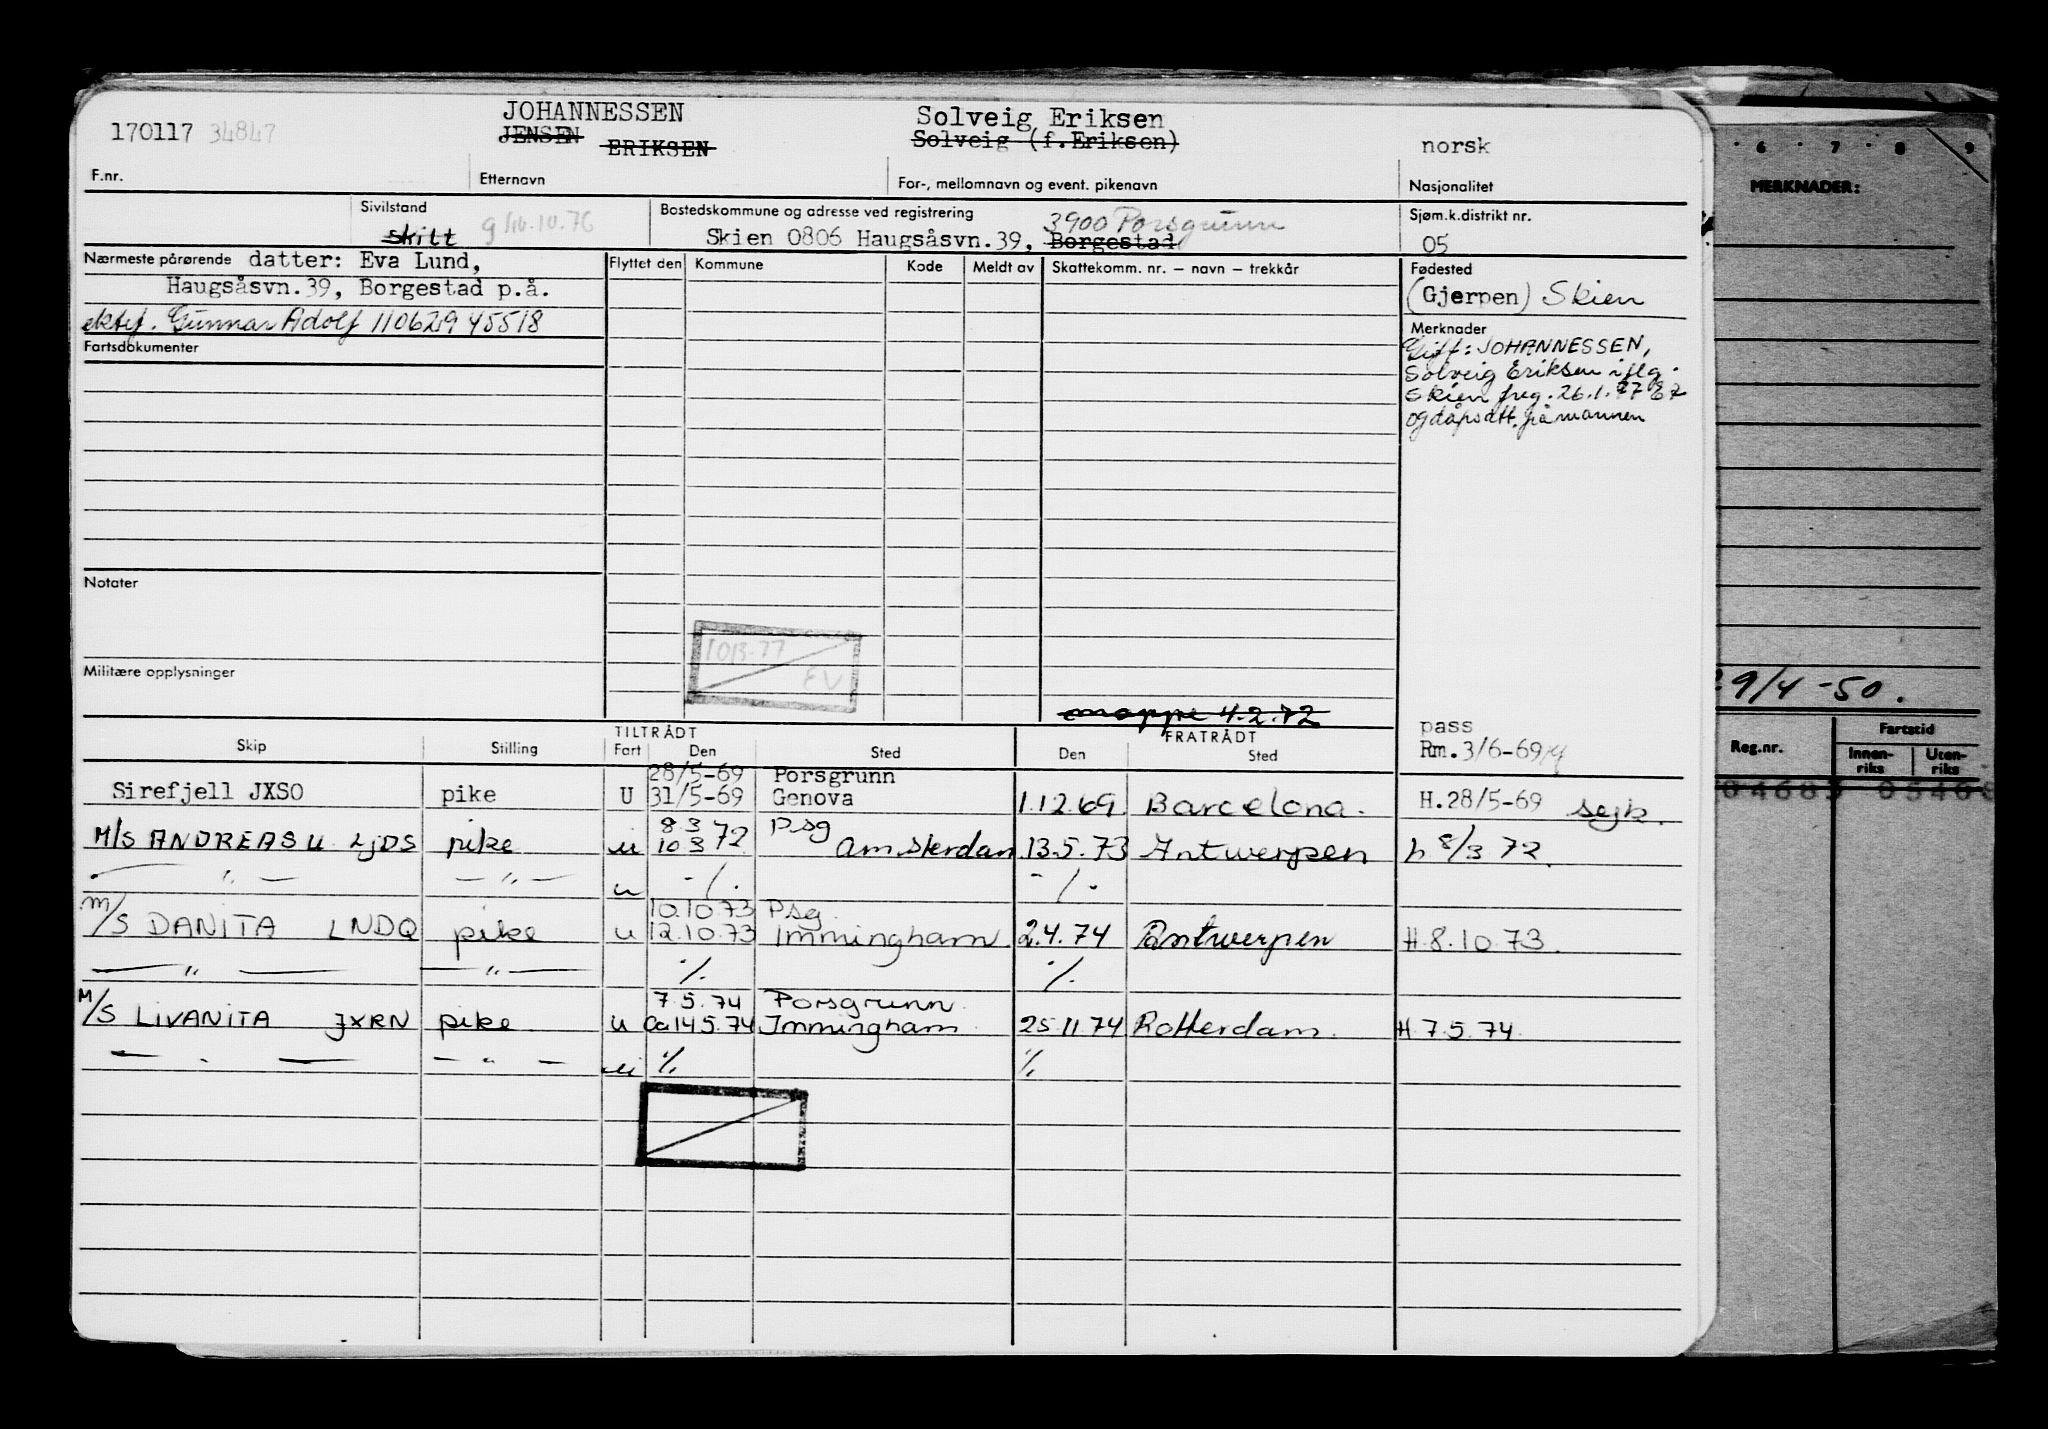 JOHANNESSEN Solveig Eriksen
170117 34847 JENSEN ERIKSEN Solveig (f.Eriksen) norsk
F.nr. Etternavn For-, mellomnavn og event. pikenavn Nasjonalitet
Sivilstand Bostedskommune og adresse ved registrering 3900 Porsgrunn Sjøm.k.distrikt nr.
skilt g 16.10.76 Skien 0806 Haugsåsvn.39, Borgestad 05
Nærmeste pårørende datter: Eva Lund, Flyttet den Kommune Kode Meldt av Skattekomm. nr. – navn – trekkår Fødested
Haugsåsvn.39, Borgestad p.å. (Gjerpen) Skien
ektef. Gunnar Adolf 110629 45518 Merknader
Fartsdokumenter Gift: JOHANNESSEN,
Solveig Eriksen iflg.
Skien freg. 26.1.77
og dåpsatt. på mannen
Notater
1013-77
EV
Militære opplysninger
mappe 4.2.72
pass
Rm. 3/6-69
TILTRÅDT FRATRÅDT
Skip Stilling Fart Den Sted Den Sted
28/5-69 Porsgrunn
Sirefjell JXSO pike U 31/5-69 Genova 1.12.69. Barcelona. H.28/5-69 sejk.
8.3 Psg
M/S ANDREAS U LJDS pike u 10.3 72 Amsterdam 13.5.73 Antwerpen h 8/3 72.
— " — — " — u -/. -/.
10.10.73 Psg.
M/S DANITA LNDQ pike u 12.10.73 Immingham 2.4.74 Antwerpen H.8.10.73.
— " — — " — ./. ./.
7.5.74 Porsgrunn.
M/S LIVANITA JXRN pike u ca 14.5.74 Immingham 25.11.74 Rotterdam. H 7.5.74.
— " — — " — u ./. ./.
6 . 7 . 8 9
MERKNADER:
29/4 -50.
Reg.nr. Fartstid
Innen-riks Uten-riks